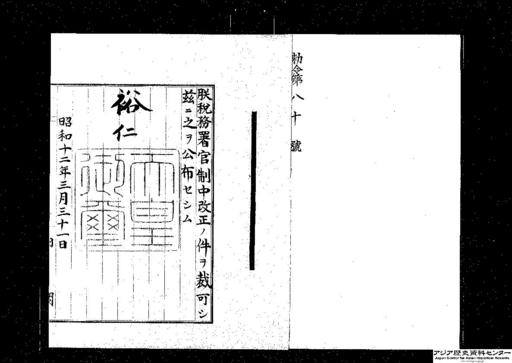 勅令第八十號
朕税務署官制中改正ノ件ヲ裁可シ
茲ニ之ヲ公布セシム
裕仁
天皇
御璽
昭和十二年三月三十一日
アジア歴史資料センター
Japan Center for Asian Historical Records